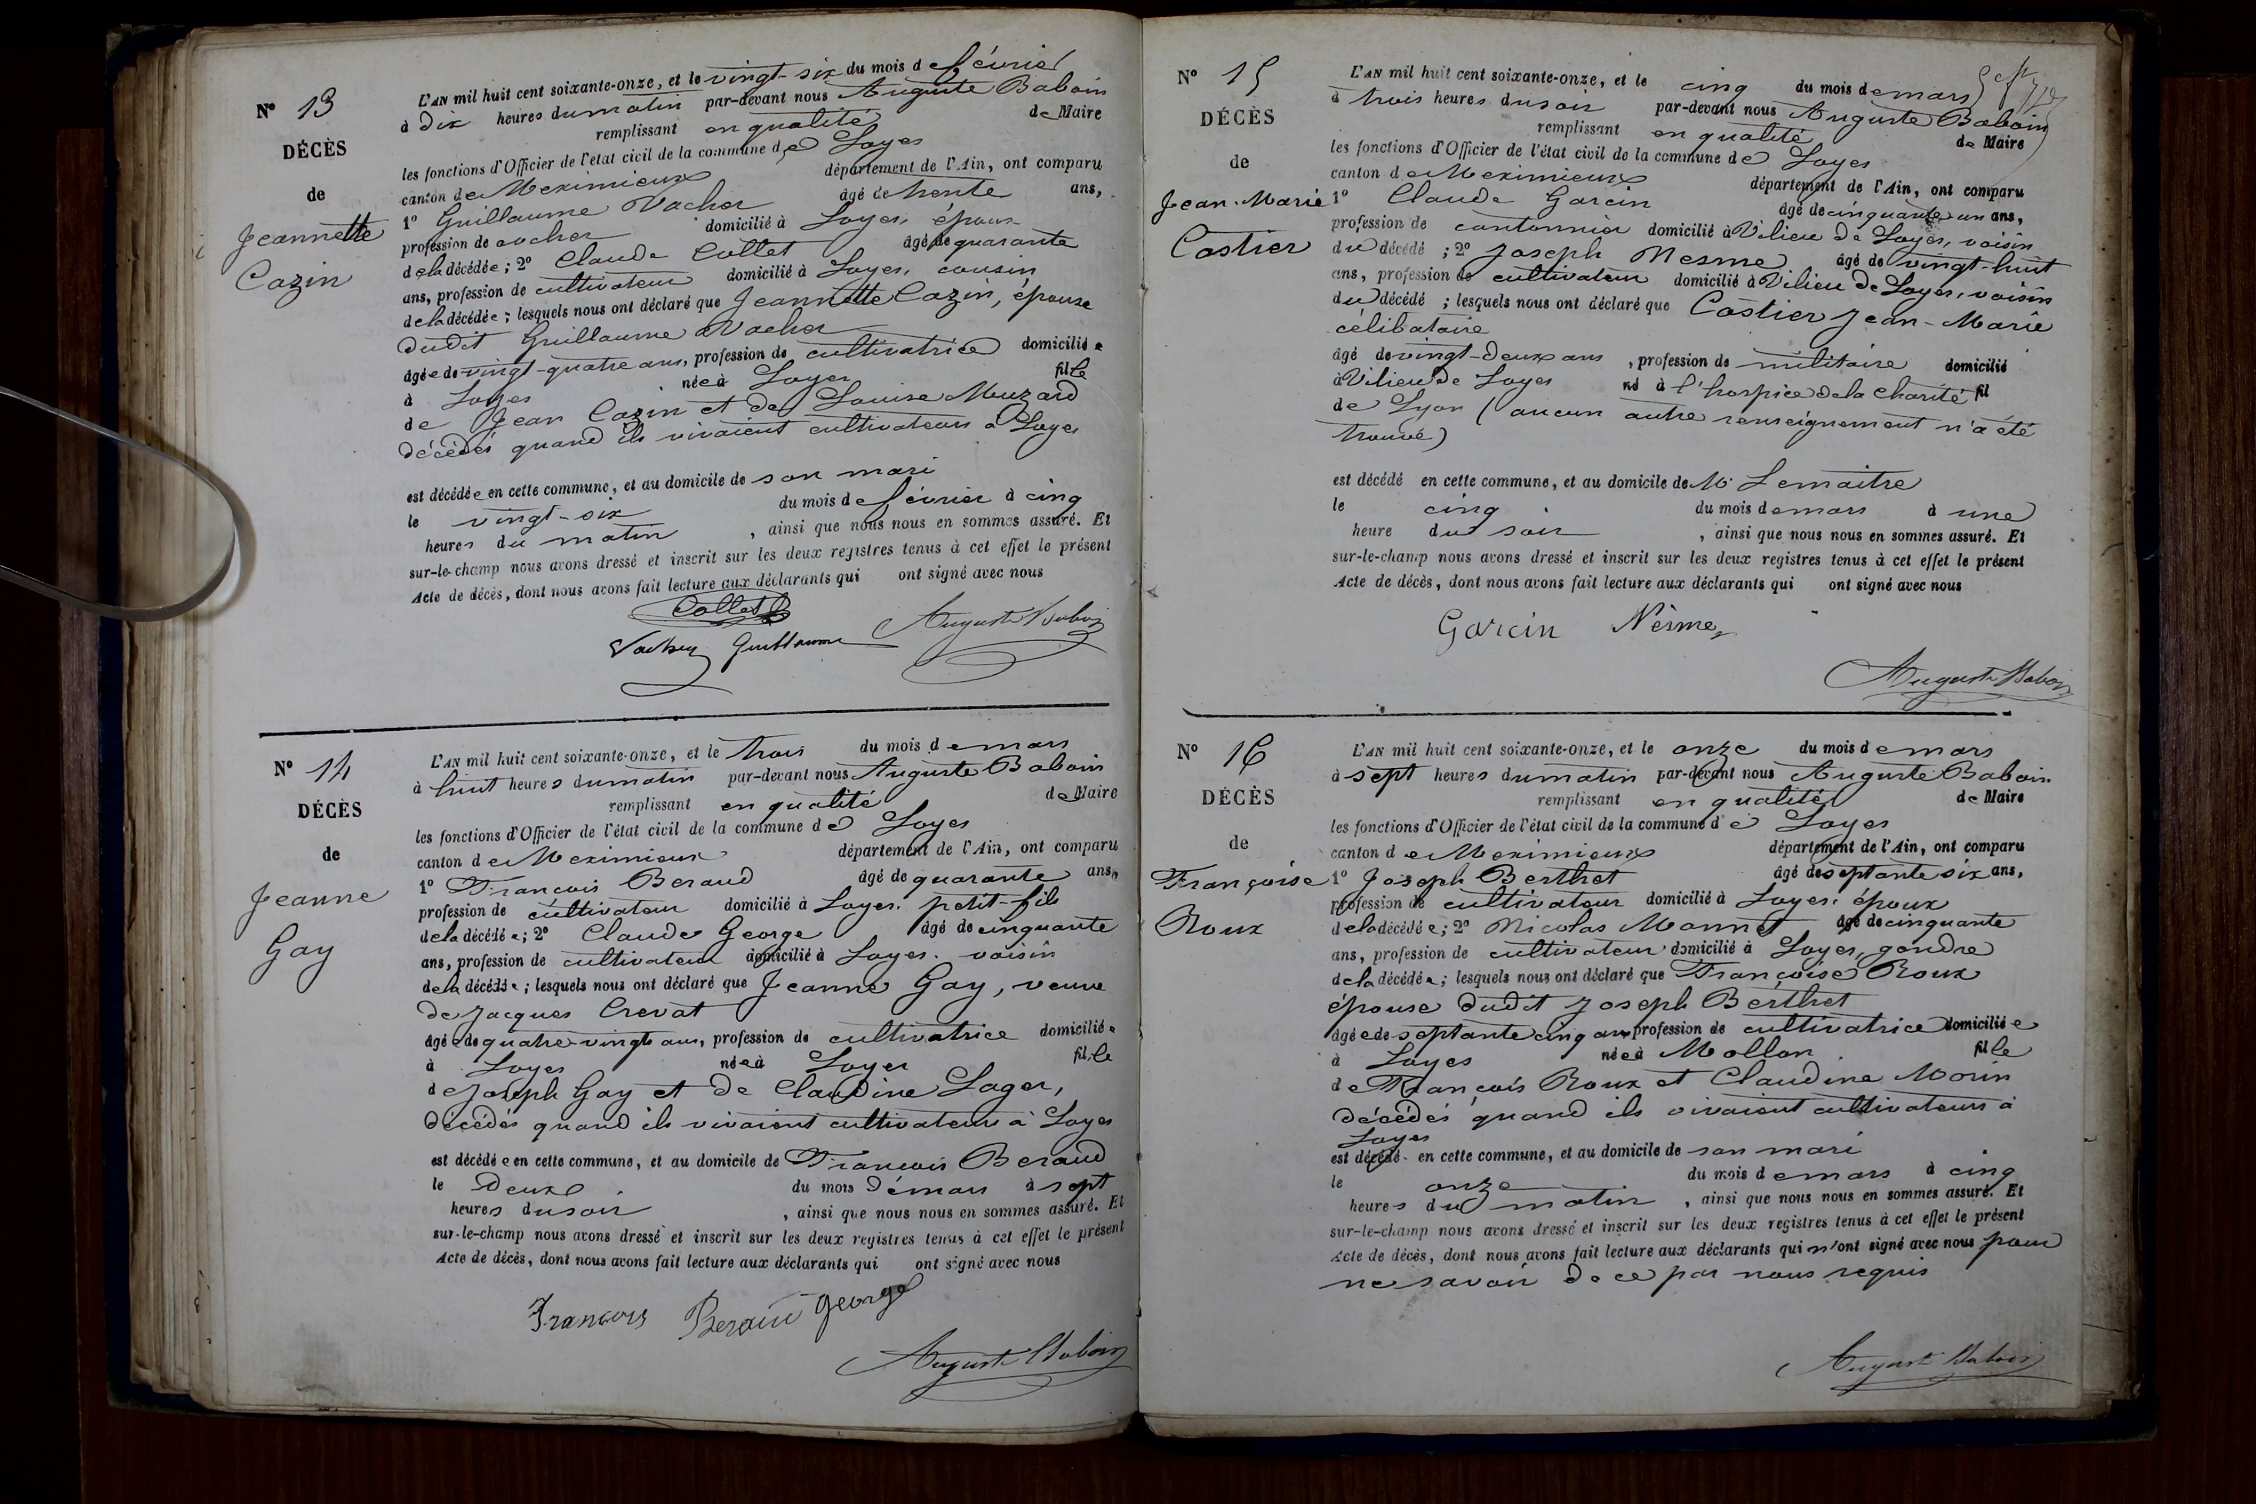 N° 13
DÉCÈS
de
Jeannette
Cazin
L'AN mil huit cent soixante-onze, et le vingt-six du mois de février
à dix heures du matin par-devant nous Auguste Baboin
remplissant en qualité de Maire
les fonctions d'Officier de l'état civil de la commune de Loyes
canton de Meximieux département de l'Ain, ont comparu
1° Guillaume Vacher âgé de trente ans,
profession de cocher domicilié à Loyes, époux
de la décédée ; 2° Claude Collet âgé de quarante
ans, profession de cultivateur domicilié à Loyes, cousin
de la décédée ; lesquels nous ont déclaré que Jeannette Cazin, épouse
dudit Guillaume Vacher
âgée de vingt-quatre ans, profession de cultivatrice domiciliée
à Loyes née à Loyes fille
de Jean Cazin et de Louise Mouzard
décédés quand ils vivaient cultivateurs à Loyes
est décédée en cette commune, et au domicile de son mari
le vingt-six du mois de février à cinq
heures du matin , ainsi que nous nous en sommes assuré. Et
sur-le-champ nous avons dressé et inscrit sur les deux registres tenus à cet effet le présent
Acte de décès, dont nous avons fait lecture aux déclarants qui ont signé avec nous
Collet
Vacher Guillaume Auguste Baboin
N° 14
DÉCÈS
de
Jeanne
Gay
L'AN mil huit cent soixante-onze, et le trois du mois de mars
à huit heures du matin par-devant nous Auguste Baboin
remplissant en qualité de Maire
les fonctions d'Officier de l'état civil de la commune de Loyes
canton de Meximieux département de l'Ain, ont comparu
1° François Beraud âgé de quarante ans,
profession de cultivateur domicilié à Loyes, petit-fils
de la décédée ; 2° Claude George âgé de cinquante
ans, profession de cultivateur domicilié à Loyes, voisin
de la décédée ; lesquels nous ont déclaré que Jeanne Gay, veuve
de Jacques Crevat
âgée de quatre-vingts ans, profession de cultivatrice domiciliée
à Loyes née à Loyes fille
de Joseph Gay et de Claudine Lager,
décédés quand ils vivaient cultivateurs à Loyes
est décédée en cette commune, et au domicile de François Beraud
le deux du mois de mars à sept
heures du soir , ainsi que nous nous en sommes assuré. Et
sur-le-champ nous avons dressé et inscrit sur les deux registres tenus à cet effet le présent
Acte de décès, dont nous avons fait lecture aux déclarants qui ont signé avec nous
François Beraud George
Auguste Baboin
N° 15
DÉCÈS
de
Jean-Marie
Castier
L'AN mil huit cent soixante-onze, et le cinq du mois de mars
à trois heures du soir par-devant nous Auguste Baboin
remplissant en qualité de Maire
les fonctions d'Officier de l'état civil de la commune de Loyes
canton de Meximieux département de l'Ain, ont comparu
1° Claude Garcin âgé de cinquante un ans,
profession de cantonnier domicilié à Vilieu de Loyes, voisin
du décédé ; 2° Joseph Nesme âgé de vingt-huit
ans, profession de cultivateur domicilié à Vilieu de Loyes, voisin
du décédé ; lesquels nous ont déclaré que Castier Jean-Marie
célibataire
âgé de vingt-deux ans , profession de militaire domicilié
à Vilieu de Loyes né à l'hospice de la Charité fil
de Lyon (aucun autre renseignement n'a été
trouvé)
est décédé en cette commune, et au domicile de Mr Lemaitre
le cinq du mois de mars à une
heure du soir , ainsi que nous nous en sommes assuré. Et
sur-le-champ nous avons dressé et inscrit sur les deux registres tenus à cet effet le présent
Acte de décès, dont nous avons fait lecture aux déclarants qui ont signé avec nous
Garcin Nèsme
Auguste Baboin
N° 16
DÉCÈS
de
Françoise
Roux
L'AN mil huit cent soixante-onze, et le onze du mois de mars
à sept heures du matin par-devant nous Auguste Baboin
remplissant en qualité de Maire
les fonctions d'Officier de l'état civil de la commune de Loyes
canton de Meximieux département de l'Ain, ont comparu
1° Joseph Berthet âgé de septante six ans,
profession de cultivateur domicilié à Loyes, époux
de la décédée ; 2° Nicolas Monnet âgé de cinquante
ans, profession de cultivateur domicilié à Loyes, gendre
de la décédée ; lesquels nous ont déclaré que Françoise Roux
épouse dudit Joseph Berthet
âgée de septante cinq ans profession de cultivatrice domiciliée
à Loyes née à Mollon fille
de François Roux et Claudine Morin
décédés quand ils vivaient cultivateurs à
Loyes
est décédé en cette commune, et au domicile de son mari
le onze du mois de mars à cinq
heures du matin , ainsi que nous nous en sommes assuré. Et
sur-le-champ nous avons dressé et inscrit sur les deux registres tenus à cet effet le présent
Acte de décès, dont nous avons fait lecture aux déclarants qui n'ont signé avec nous pour
ne savoir de ce par nous requis
Auguste Baboin